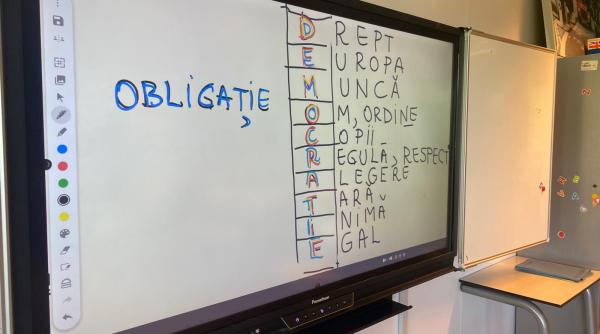 OBLIGAȚIE
DREPT
EUROPA
MUNCĂ
OM, ORDINE
COPII
REGULĂ, RESPECT
ALEGERE
ȚARĂ
INIMĂ
EGAL
Promethean